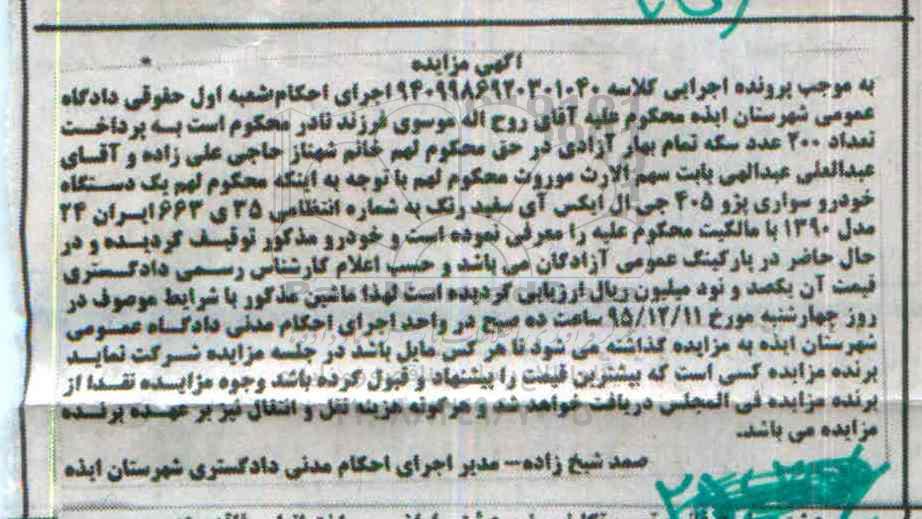 آگهی مزایده
به موجب پرونده اجرایی کلاسه ۹۴۰۹۹۸۶۹۲۰۳۰۱۰۴۰ اجرای احکام شعبه اول حقوقی دادگاه
عمومی شهرستان ایذه محکوم علیه آقای روح اله موسوی فرزند نادر محکوم است به پرداخت
تعداد ۲۰۰ عدد سکه تمام بهار آزادی در حق محکوم لهم خانم شهناز حاجی علی زاده و آقای
عبدالعلی عبدالهی بابت سهم الارث موروث محکوم لهم با توجه به اینکه محکوم لهم یک دستگاه
خودرو سواری پژو ۴۰۵ جی ال ایکس آی سفید رنگ به شماره انتظامی ۳۵ ی ۶۶۳ ایران ۲۴
مدل ۱۳۹۰ با مالکیت محکوم علیه را معرفی نموده است و خودرو مذکور توقیف گردیده و در
حال حاضر در پارکینگ عمومی آزادگان می باشد و حسب اعلام کارشناس رسمی دادگستری
قیمت آن یکصد و نود میلیون ریال ارزیابی گردیده است لهذا ماشین مذکور با شرایط موصوف در
روز چهارشنبه مورخ ۹۵/۱۲/۱۱ ساعت ده صبح در واحد اجرای احکام مدنی دادگاه عمومی
شهرستان ایذه به مزایده گذاشته می شود تا هر کس مایل باشد در جلسه مزایده شرکت نماید
برنده مزایده کسی است که بیشترین قیمت را پیشنهاد و قبول کرده باشد وجوه مزایده نقدا از
برنده مزایده فی المجلس دریافت خواهد شد و هرگونه هزینه نقل و انتقال نیز بر عهده برنده
مزایده می باشد.
صمد شیخ زاده – مدیر اجرای احکام مدنی دادگستری شهرستان ایذه